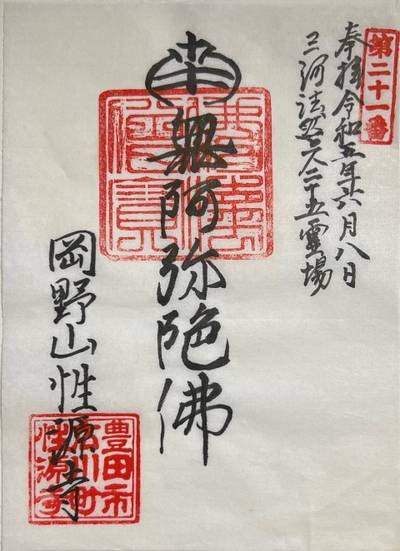 第二十一番
奉拝 令和五年六月八日
三河法然上人二十五霊場
南無阿弥陀佛
岡野山性源寺
豊田市
性源寺